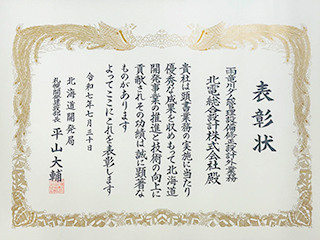 表彰状
雨竜川ダム管理設備修正設計外業務
北電総合設計株式会社 殿
貴社は頭書業務の実施に当たり
優秀な成果を収めもって北海道
開発事業の推進と技術の向上に
貢献されその功績は誠に顕著な
ものがあります
よってここにこれを表彰します
令和七年七月三十日
北海道開発局
札幌開発建設部長 平山大輔